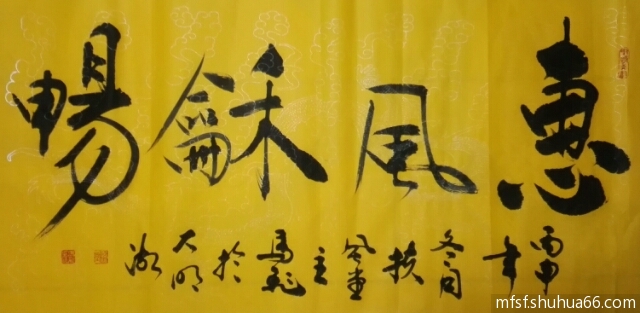 惠風龢暢
丙申年冬月扶風堂主馬飛於大明湖
mfsf.shuhua66.com